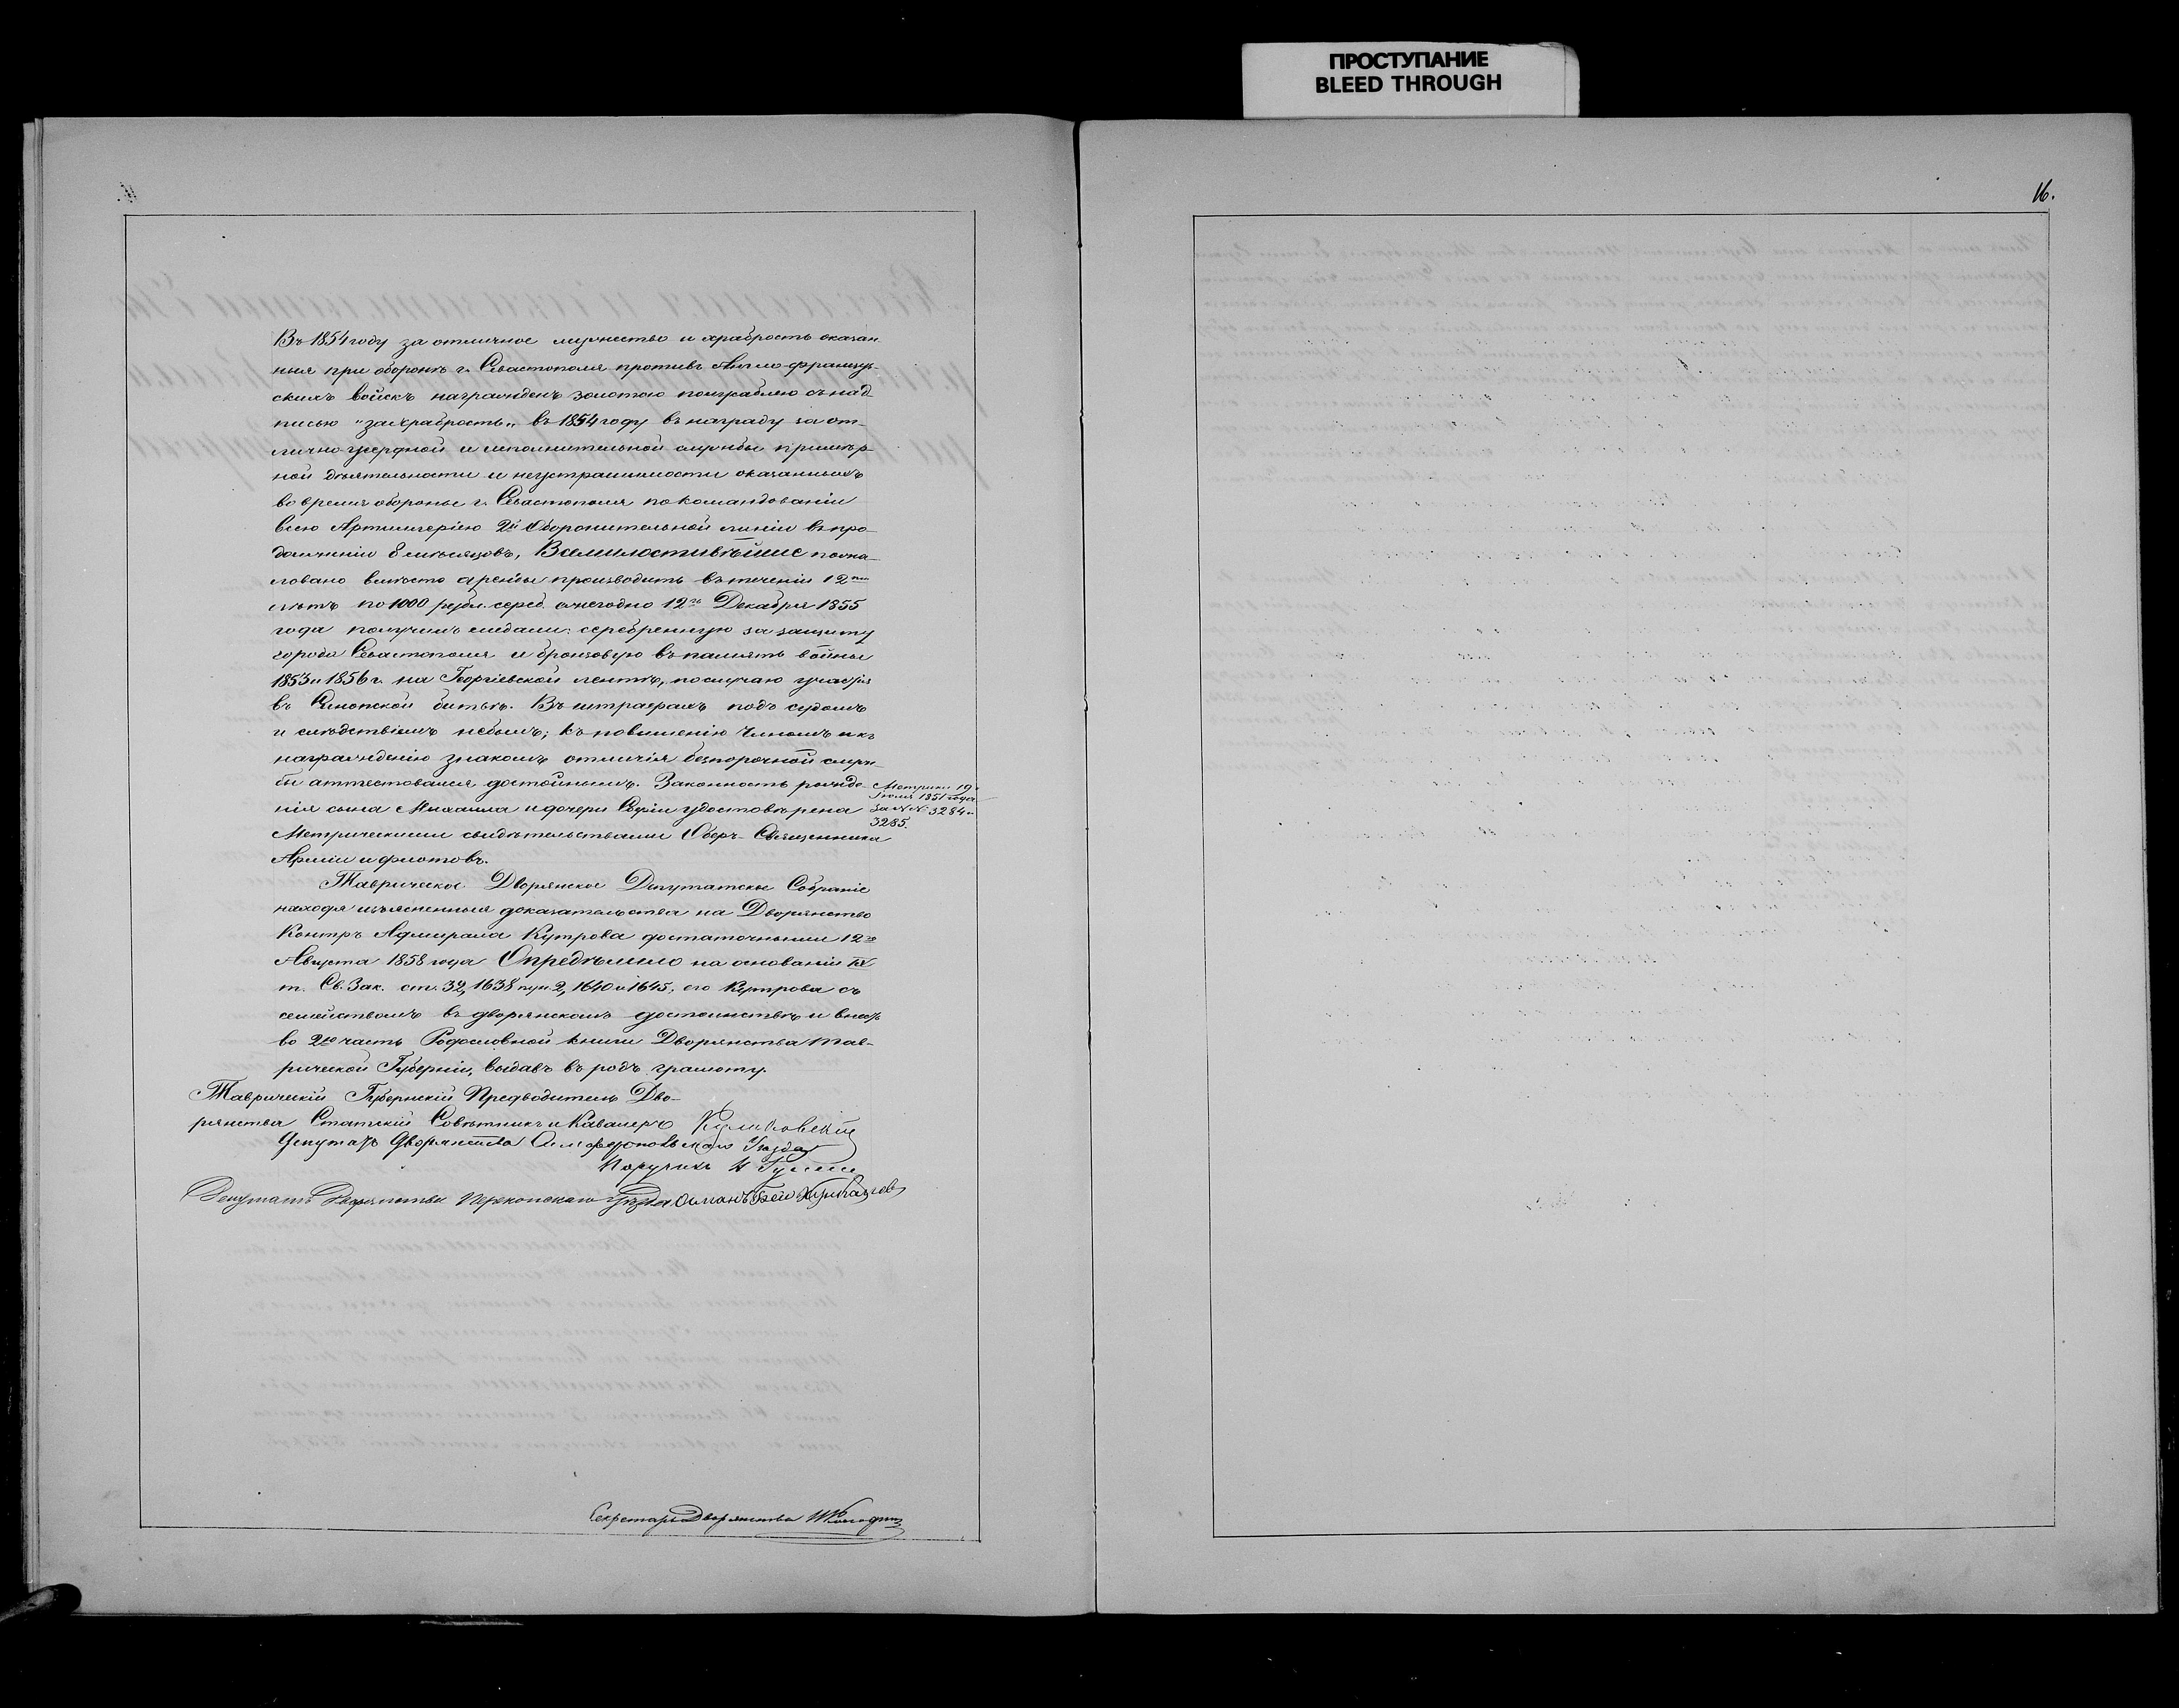 ПРОСТУПАНИЕ
BLEED THROUGH
16.
Въ 1854 году за отличное мужество и храбрость оказан
ныя при оборонѣ г. Севастополя противъ Англо-француз-
скихъ войскъ награжденъ золотою полусаблею съ над
писью "за храбрость„ въ 1854 году въ награду за от-
лично усердной и исполнительной службы примѣр-
ной дѣятельности и неустрашимости оказанныхъ
во время обороны г. Севастополя по командованіи
всею Артиллеріею 2й Оборонительной линіи въ про-
долженіи 8 мѣсяцовъ, Всемилостивѣйше пожа-
ловано вмѣсто аренды производить въ теченіи 12ти
лѣтъ по 1000 рубл. сереб. ежегодно 12го Декабря 1855
года получилъ медали: серебренную за защиту
города Севастополя и бронзовую въ память войны
1853 и 1856 г. на Георгіевской лентѣ, по случаю участія
въ Синопской битвѣ. Въ штрафахъ подъ судомъ
и слѣдствіемъ небылъ; къ повышенію чиномъ и къ
награжденію знакомъ отличія безпорочной служ-
бы аттестовался достойнымъ. Законность рожде-
нія сына Михаила и дочери Софіи удостовѣрена
Метрическими свидѣтельствами Оберъ-Священника
Арміи и флотовъ.
Метрики 19
Іюля 1851 года
за №№ 3284 и
3285.
Таврическое Дворянское Депутатское Собраніе
находя изъясненныя доказательства на Дворянство
Контръ Адмирала Кутрова достаточными 12го
Августа 1858 года Опредѣлило на основаніи IX
т. Св. Зак. ст. 32, 1638 пун. 2, 1640 и 1645, его Кутрова съ
семействомъ въ дворянскомъ достоинствѣ и внесть
во 2ю часть Родословной книги Дворянства Тав-
рической Губерніи, выдавъ въ родъ грамоту.
Таврическій Губернскій Предводитель Дво-
рянства Статскій Совѣтникъ и Кавалеръ
Депутатъ Дворянства Симферопольскаго Уѣзда
Поручикъ
Депутатъ Дворянства Перекопскаго Уѣзда Османъ Бей
Секретарь Дворянства